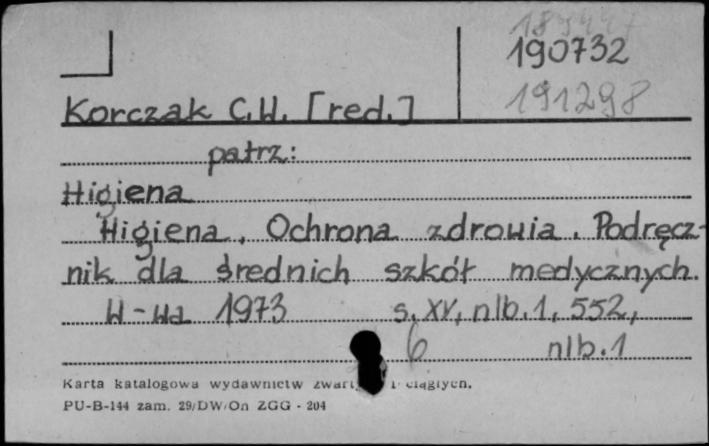 190732
191298
Korczak C.W. [red.]
patrz:
Higiena
Higiena. Ochrona zdrowia. Podręcz-
nik dla średnich szkół medycznych.
W-wa 1973 s. XV, nlb.1, 552,
6 nlb.1
Karta katalogowa wydawnictw i ciągłych.
PU-B-144 zam. 29/DW/On ZGG - 204